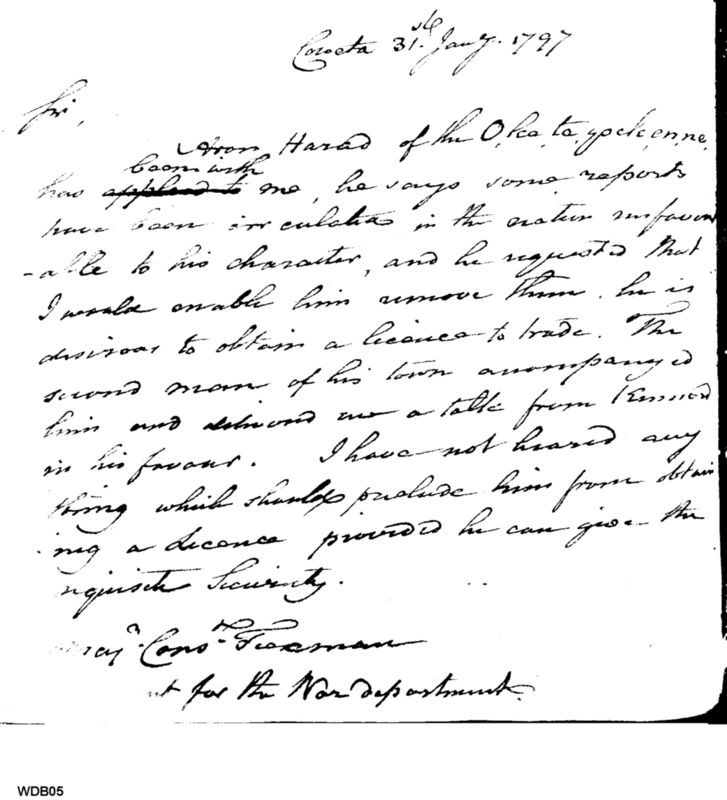 Coweta 31.st Jany. 1797
Sir,
Aron Harad of the O,kee,ta,yockenne,
been with
has applied to me, he says some reports
have been circulated in the nation unfavour
-able to his character, and he requested that
I would enable him remove them. he is
desirous to obtain a licence to trade. The
second man of his town accompanyed
him and delivered me a talk from Kennard
in his favour. I have not heared any
thing which should preclude him from obtain
ing a Licence provided he can give the
requisite Security.
Const. Freeman
for the War department.
WDB05